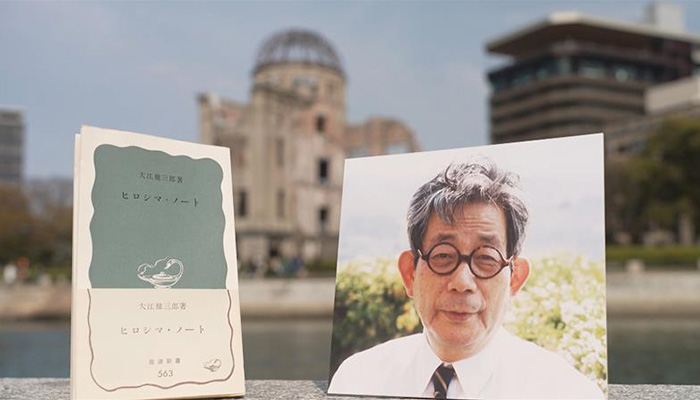 大江健三郎著
ヒロシマ・ノート
大江健三郎著
ヒロシマ・ノート
岩波新書
563